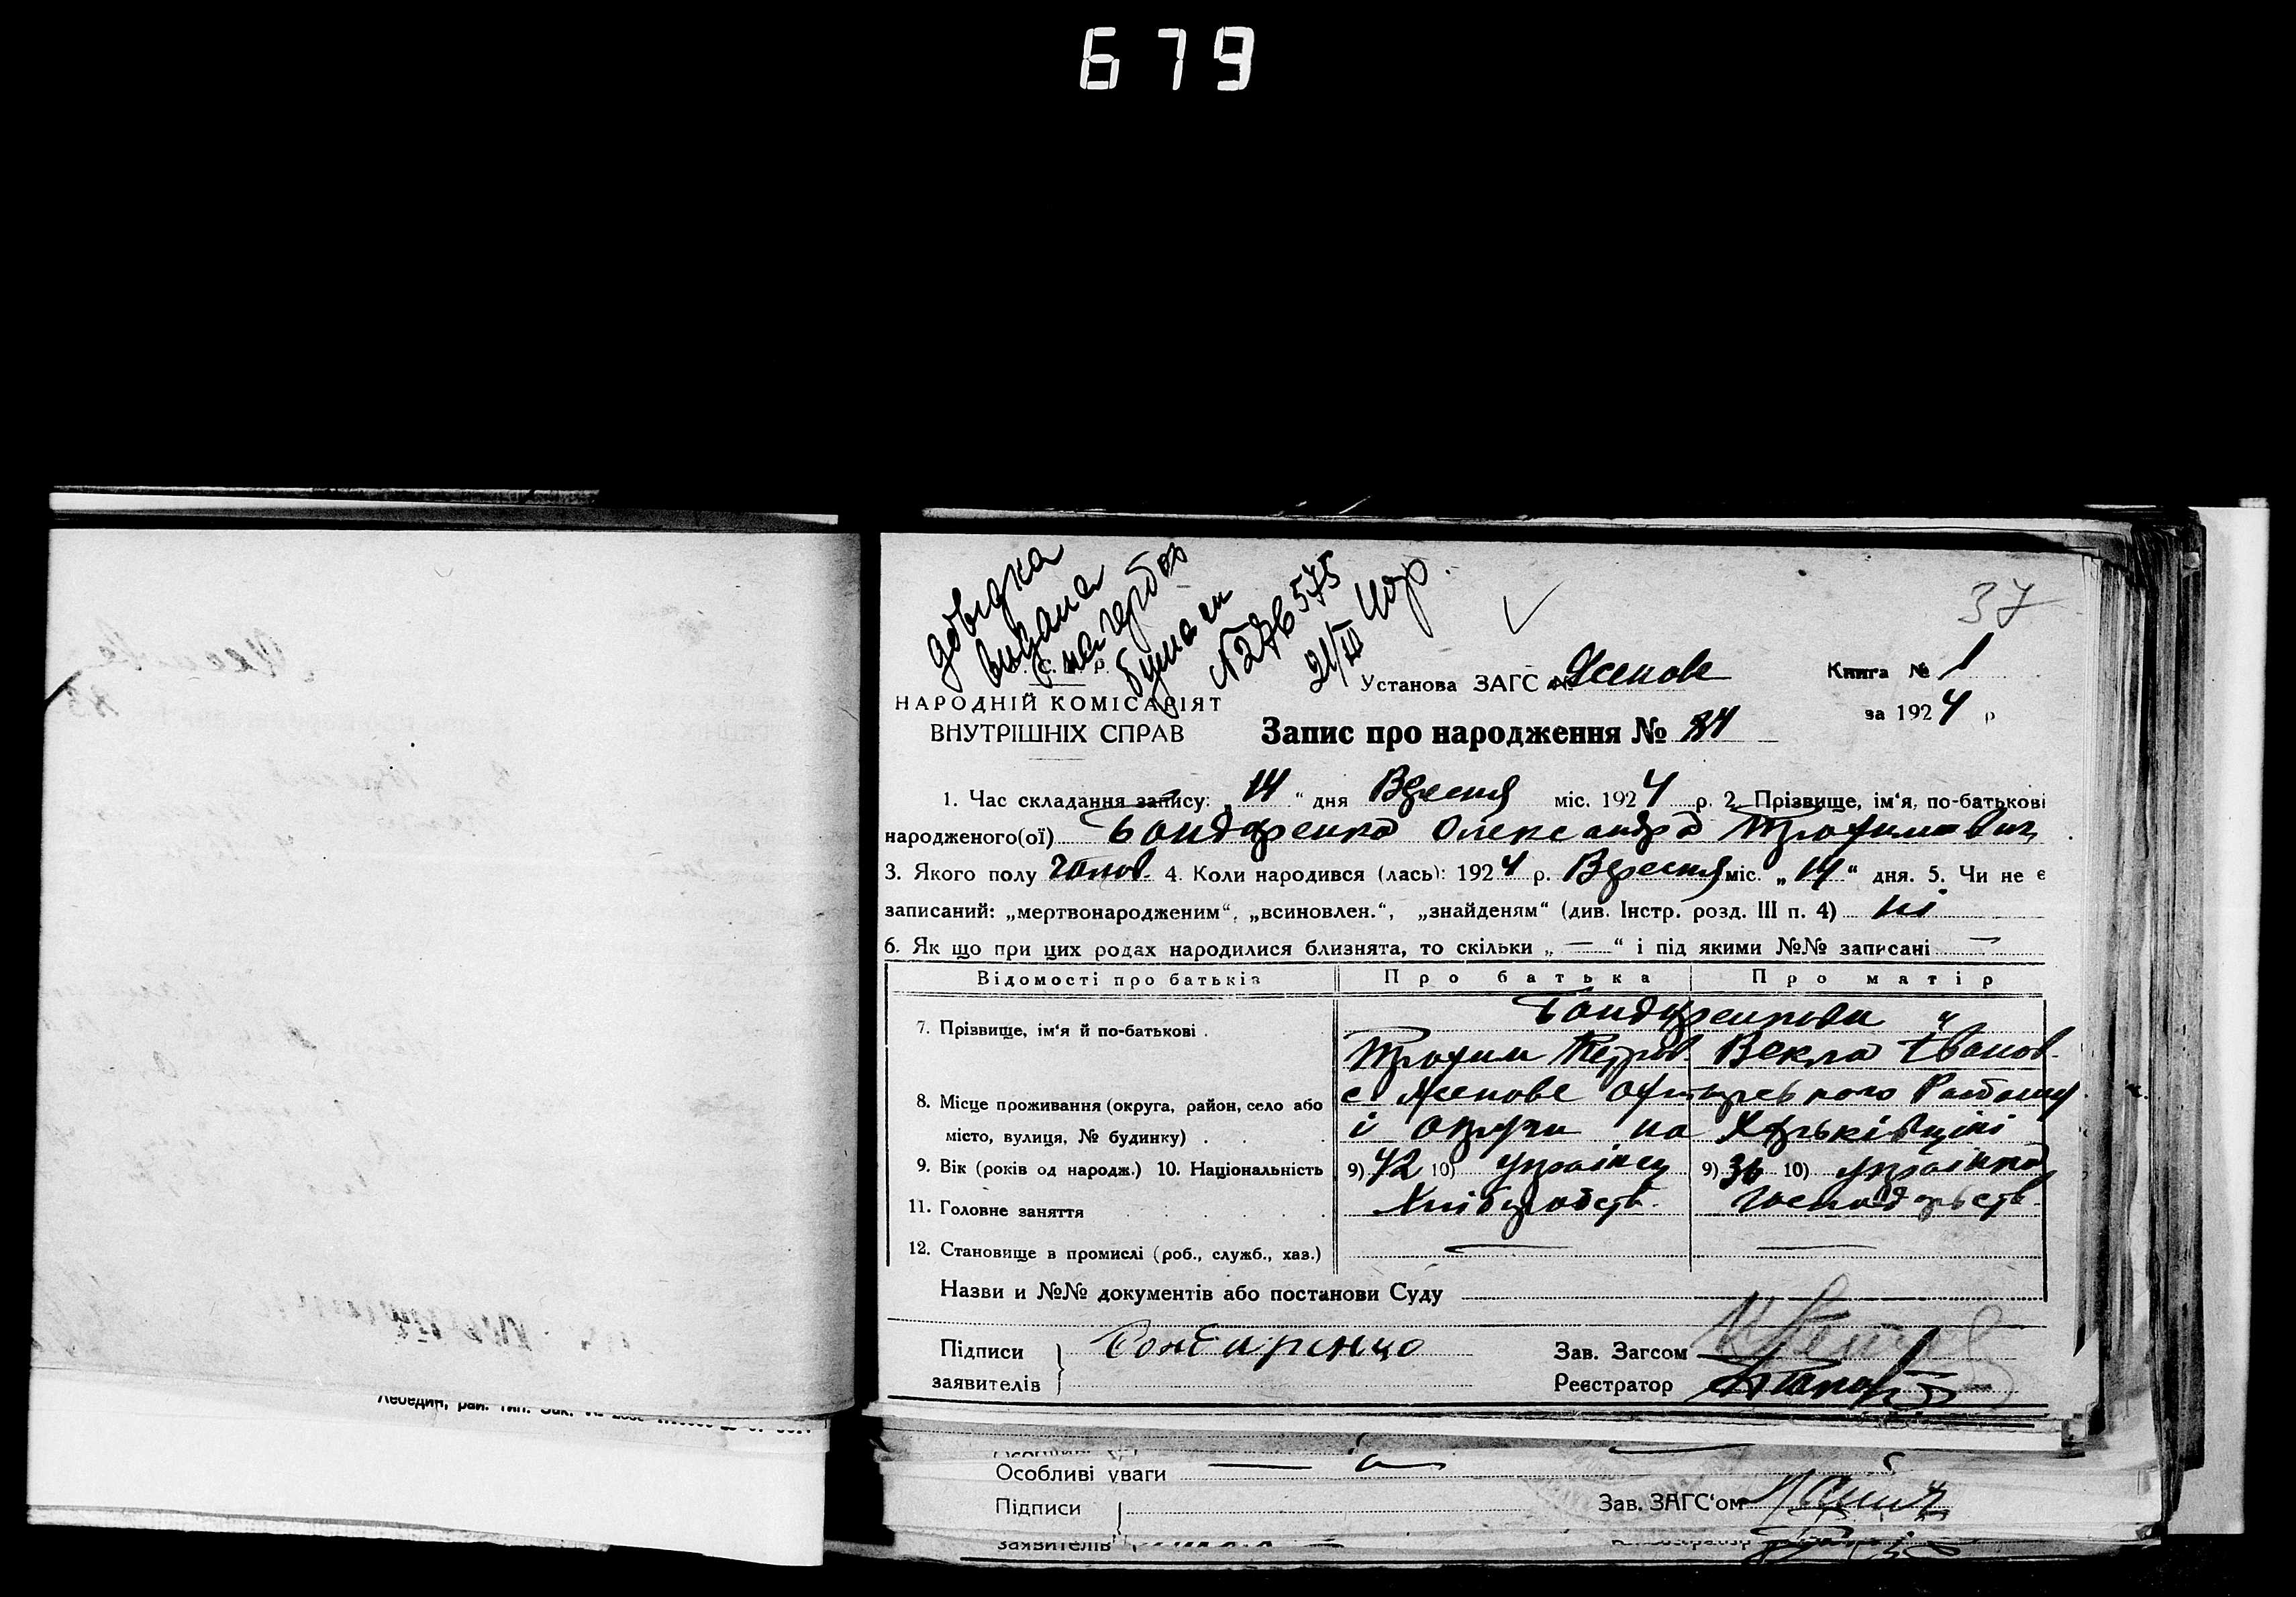 679
довідка
видана
на гербов
бумаги
№276575
21/III
37
Установа ЗАГС № Ясенове
Книга № 1
НАРОДНІЙ КОМІСАРІЯТ
за 1924 р
ВНУТРІШНІХ СПРАВ
Запис про народження №
1. Час складання запису: „14“ дня Вересня міс. 1924 р. 2. Прізвище, ім‘я, по-батькові
народженого(ої) Бондаренко Олександр Трофимович
3. Якого полу чолов. 4. Коли народився (лась): 1924 р. Вересня міс. „14“ дня. 5. Чи не є
записаний: „мертвонародженим“, „всиновлен.“, „знайденям“ (див. Інстр. розд. III п. 4) ні
6. Як що при цих родах народилися близнята, то скільки „ — “ і під якими №№ записані —
Відомості про батьків Про батька Про матір
7. Прізвище, ім‘я й по-батькові .
Бондаренкови
Трофим Петров. Векла Іванов.
8. Місце проживання (округа, район, село або
с Ясенове Охтирського Району
місто, вулиця, № будинку) . . .
і округи на Харьківщині
9. Вік (років од народж.) 10. Національність 9) 42 10) українец 9) 36 10) українка
11. Головне заняття Хлібороб­ств. Господарьств.
12. Становище в промислі (роб., служб., хаз.) — —
Назви и №№ документів або постанови Суду
Підписи Бондаренцо
Зав. Загсом
заявителів
Реєстратор
Лебедин, рай. тип. Зак.
Особливі уваги
Підписи
Зав. ЗАГС‘ом
заявителів